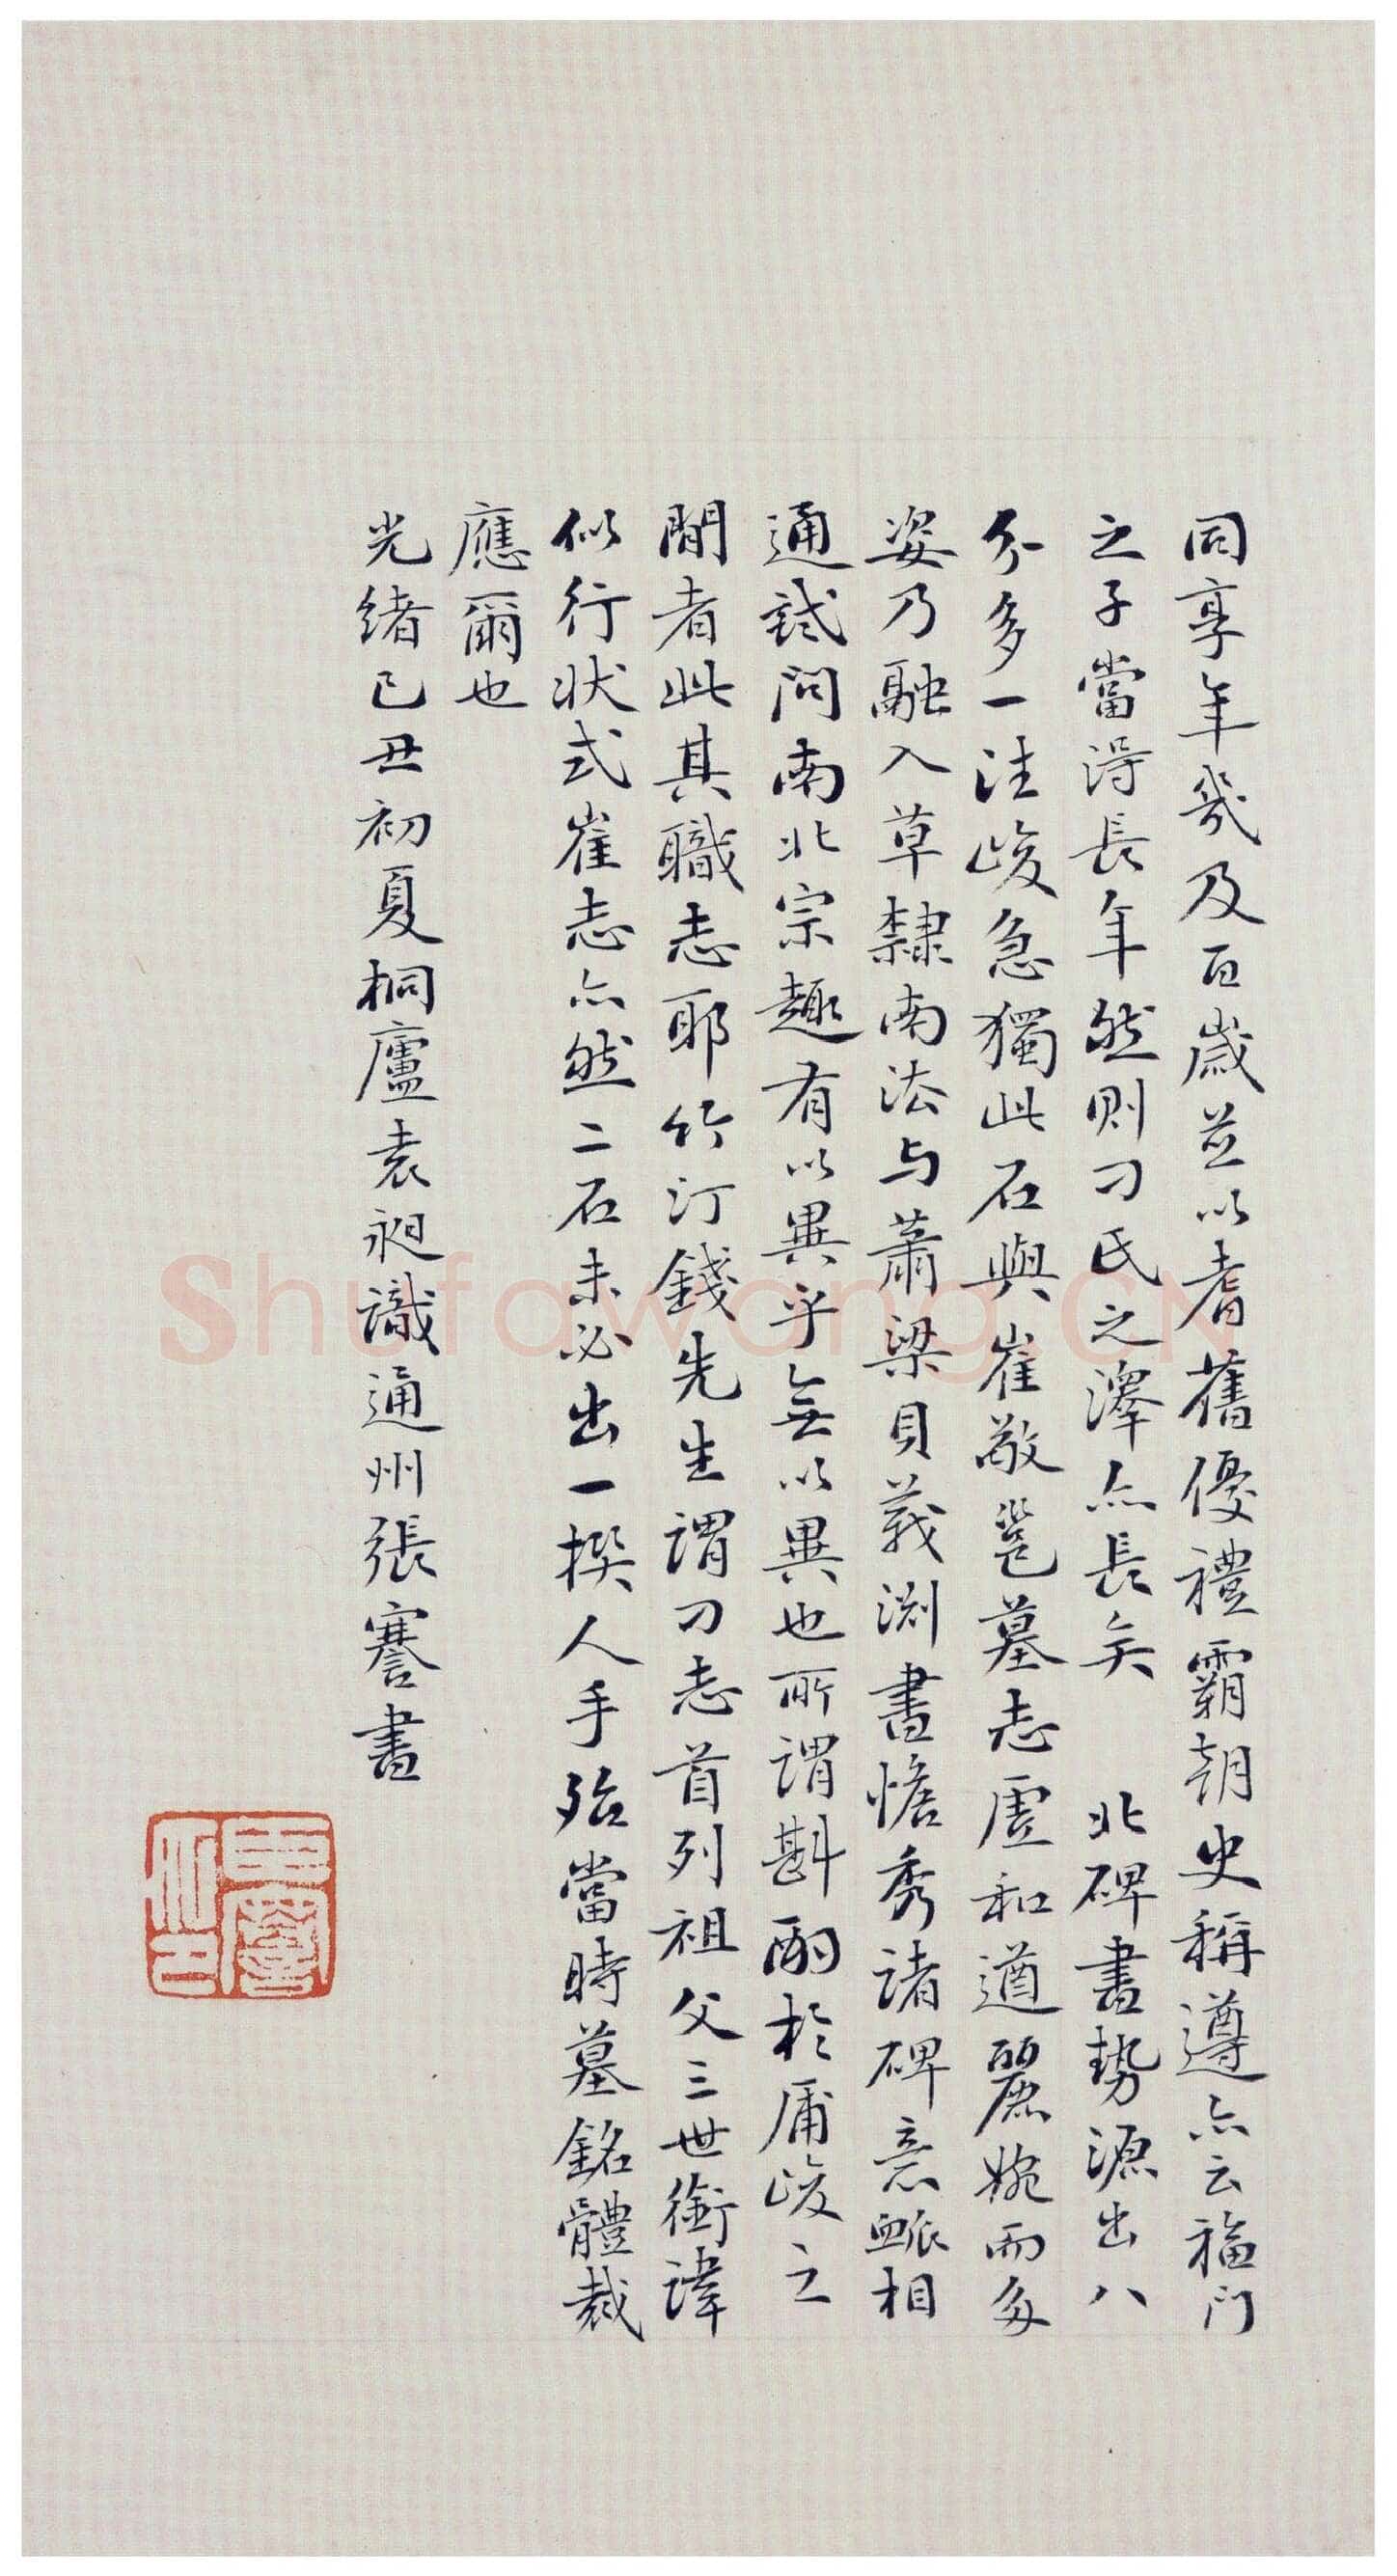 同享年幾及百歲並以耆舊優禮霸朝史稱遵亦云福門
之子當得長年然則刁氏之澤亦長矣 北碑書勢源出八
分多一注峻急獨此石與崔敬邕墓志虛和遒麗婉而多
姿乃融入草隸南法与蕭梁貝義淵書憺秀諸碑意脈相
通試問南北宗趣有以異乎無以異也所謂斟酌於庸峻之
間者此其職志耶竹汀錢先生謂刁志首列祖父三世銜諱
似行狀式崔志亦然二石未必出一撰人手殆當時墓銘體裁
應爾也
光緒己丑初夏桐廬袁昶識通州張謇書
Shufawang.CN